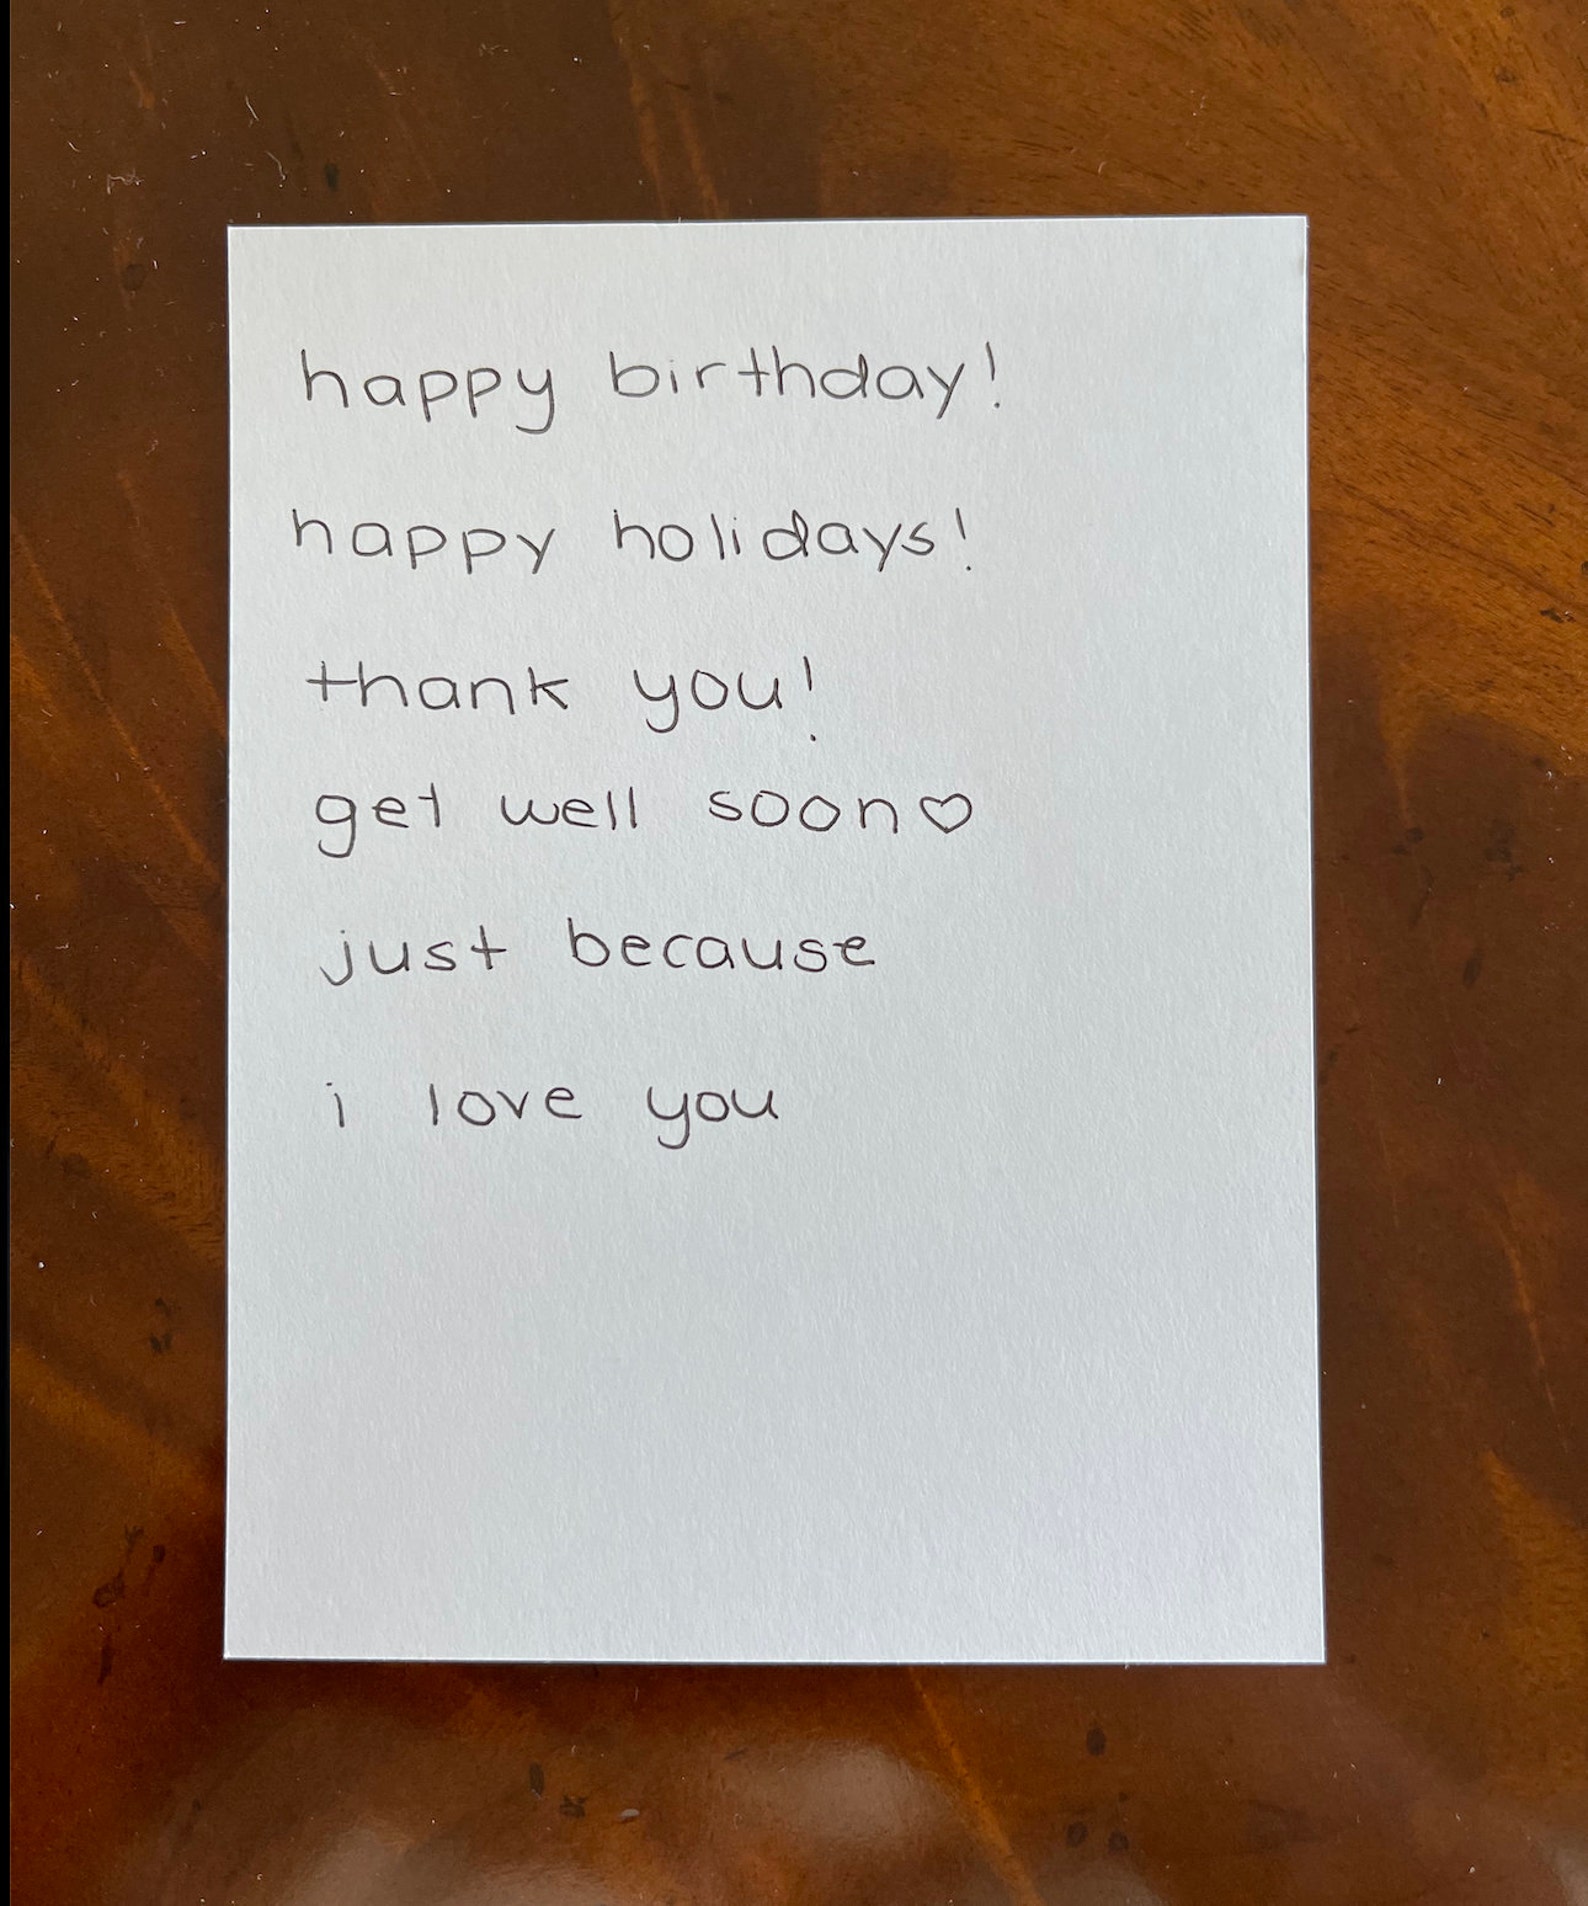 happy birthday!
happy holidays!
thank you!
get well soon♡
just because
i love you